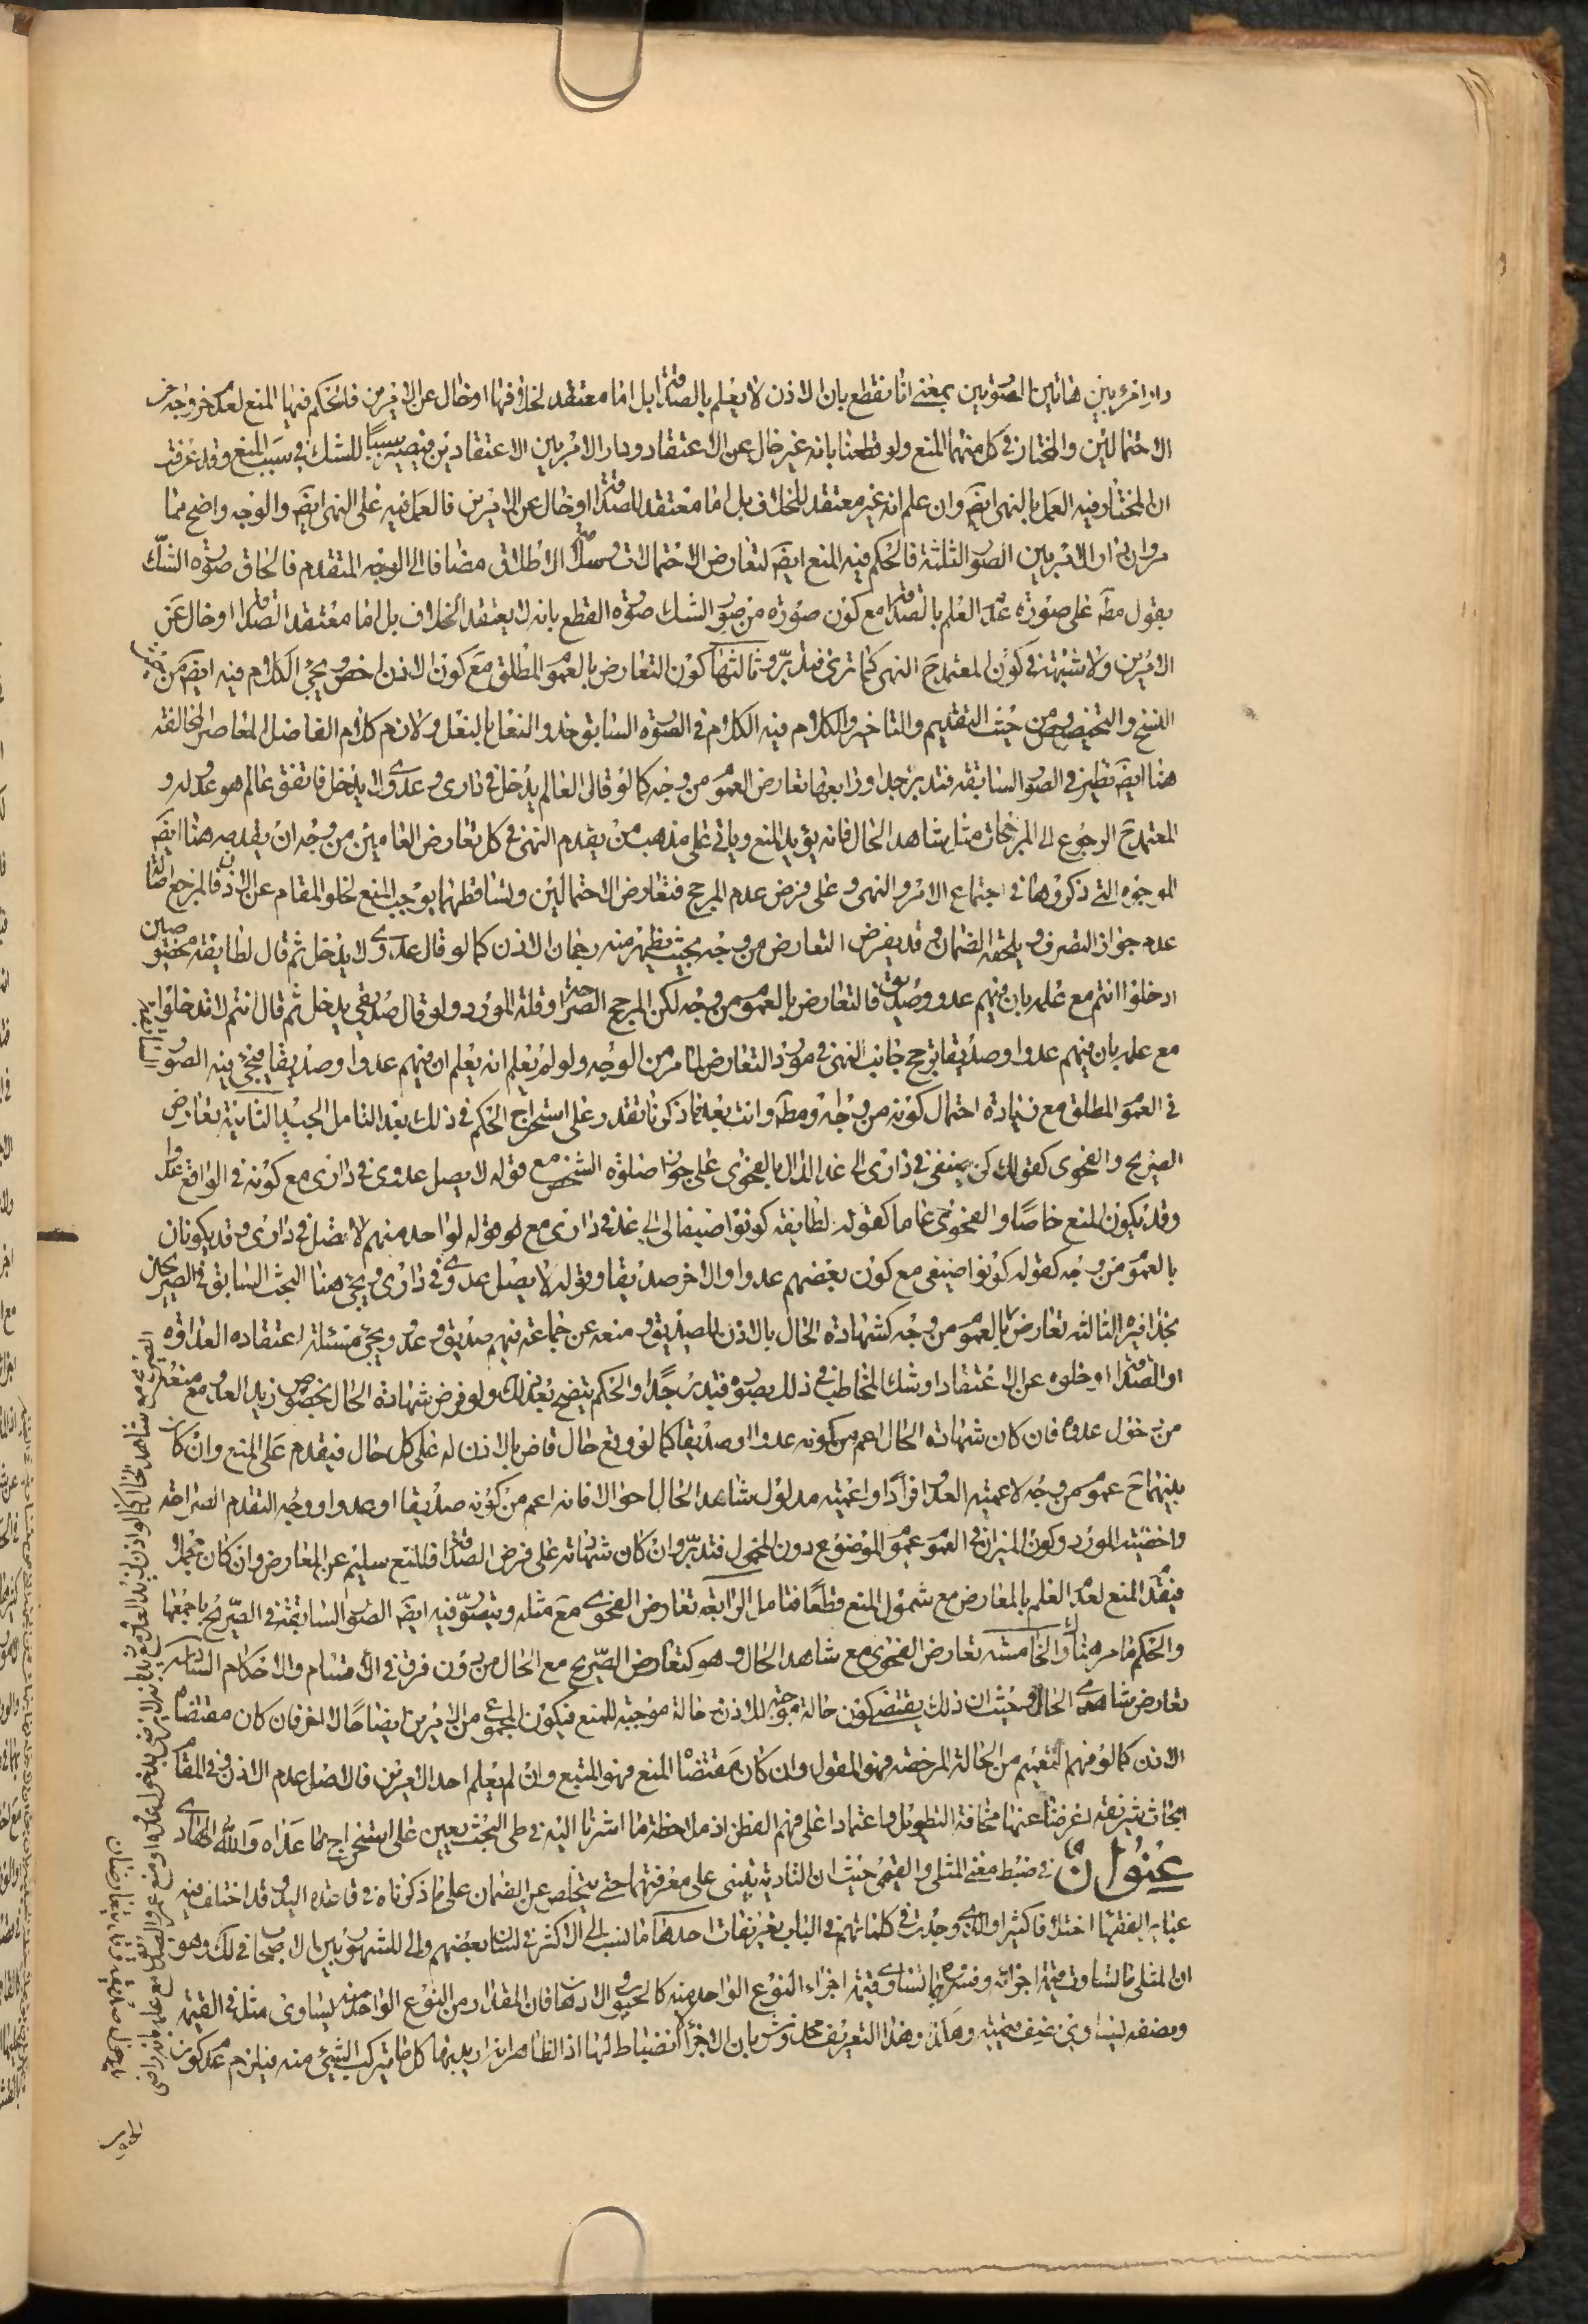 دار امره بين هاتين الصورتين بمعنى انا نقطع بان الاذن لا يعلم بالصداقة بل اما معتقد لخلافها او خال عن الامرين فالحكم فيها المنع لعدم خروجه عن
الاحتمالين والمختار في كل منهما المنع ولو قطعنا بانه غير خال عن الاعتقاد ودار الامر بين الاعتقادين فيصير سببا للشك في سبب المنع وقد عرفت
ان المختار فيه العمل بالنهى ايضا وان علم انه غير معتقد للخلاف بل اما معتقد للصداقة او خال عن الامرين فالعمل فيه على النهى ايضا والوجه واضح مما
مر وان دار الامر بين الصور الثلثة فالحكم فيه المنع ايضا لتعارض الاحتمالات الاطلاق مضافا الى الوجه المتقدم فالحاق صورة الشك
بقول مط على صورة عدم العلم بالصداقة مع كون صورة من صور الشك صورة القطع بانه لا يعتقد الخلاف بل اما معتقد الصداقة او خال عن
الامرين ولا شبهة في كون المعتمد ح النهى كما ترى فتدبر وثالثها كون التعارض بالعموم المطلق مع كون الاذن اخص ويجئ الكلام فيه ايضا من
النسخ والتخصيص من حيث التقديم والتاخير والكلام فيه الكلام في الصورة السابق حذو النعل بالنعل ولازم كلام الفاضل المعاصر المخالفة
هنا ايضا نظير في الصور السابقة فتدبر جدا ورابعها تعارض العموم من وجه كما لو قال العالم يدخل في دارى وعدوى لا يدخل فاتفق عالم هو عدو له و
المعتمد ح الرجوع الى المرجحات مثل شاهد الحال فانه يؤيد المنع وياتى على مذهب من يقدم النهى في كل تعارض العامين من وجه ان يقدمه هنا ايضا
للوجوه التى ذكروها في اجتماع الامر والنهى وعلى فرض عدم المرجح فتعارض الاحتمالين وتساقطهما يوجب المنع لخلو المقام عن الاذن فالمرجع اصالة
عدم جواز التصرف ويلحقه الضمان وقد يفرض التعارض من وجه بحيث يظهر منه رجحان الاذن كما لو قال عدوى لا يدخل ثم قال لطايفة مخصوصين
ادخلوا انتم مع علمه بان فيهم عدو وصديق فالتعارض بالعموم من وجه لكن المرجح الصراحة او قلة المورد ولو قال صديقى يدخل ثم قال انتم لا تدخلوا
مع علمه بان فيهم عدوا وصديقا يرجح جانب النهى في مورد التعارض لما مر من الوجه ولو لم يعلم انه يعلم ان فيهم عدوا وصديقا فيجئ فيه الصور
في العموم المطلق مع زيادة احتمال كونه من وجه ومط وانت بعد ما ذكرنا تقدر على استخراج الحكم في ذلك بعد التامل الجيد الثانية تعارض
الصريح والفحوى كقوله كن ضيفى في دارى الى غد الدال بالفحوى على جواز صلوة الشخص مع قوله لا يصل عدوى في دارى مع كونه في الواقع عدوا
وقد يكون المنع خاصا والفحوى عاما كقوله لطايفة كونوا ضيفا لى الى غد في دارى مع قوله لواحد منهم لا تصل في دارى وقد يكونان
بالعموم من وجه كقوله كونوا ضيفى مع كون بعضهم عدوا والاخر صديقا وقوله لا يصل عدوى في دارى ويجئ هنا البحث السابق في الصريحين
بحذافيره الثالثة تعارض بالعموم من وجه كشهادة الحال بالاذن للصديق ومنعه عن جماعة فيهم صديق وعدو ويجئ مسئلة اعتقاده العداوة
او الصداقة او خلوه عن الاعتقاد او شك المخاطب في ذلك بصوره فتدبر جدا والحكم يتضح بعد ذلك ولو فرض شهادة الحال بخصوص زيد العدو مع منعه
من دخول عدوه فان كان شهادة الحال اعم من كونه عدوا او صديقا كما لو وقع حال قاض بالاذن له على كل حال فيقدم على المنع وان كان
بينهما ح عموم من وجه لاعمية العدو افرادا واعمية مدلول شاهد الحال احوالا فانه اعم من كونه صديقا او عدوا ووجه التقدم الصراحة
واخصية المورد وكون الميزان في العموم عموم الموضوع دون المحمول فتدبر وان كان شهادته على فرض الصداقة فالمنع سليم عن المعارض وان كان مجملا
فيقدم المنع لعدم العلم بالمعارض مع شمول المنع قطعا فتامل الرابعة تعارض الفحوى مع مثله ويتصور فيه ايضا الصور السابقة في الصريح باجمعها
والحكم ما مر هناك والخامسة تعارض الفحوى مع شاهد الحال وهو كتعارض الصريح مع الحال من دون فرق في الاقسام والاحكام السادسة
تعارض شاهدى الحال وحيث ان ذلك يقتضى كون حالة موجبة للاذن وحالة موجبة للمنع فيكون المجموع من الامرين ايضا حالا اخر فان كان مقتضاه
الاذن كما لو فهم التعميم من الحالة المرخصة فهو المقول وان كان مقتضاه المنع فهو المتبع وان لم يعلم احد الامرين فالاصل عدم الاذن وفي المقام
ابحاث شريفة اعرضنا عنها مخافة التطويل واعتمادا على فهم الفطن اذ ملاحظة ما اشرنا اليه في طى البحث يعين على استخراج ما عداه والله الهادى
عنوان في ضبط معنى المثلى والقيمى حيث ان التادية يبتنى على معرفتهما حتى يتخلص عن الضمان على ما ذكرناه في قاعدة اليد وقد اختلف فيه
عباير الفقهاء اختلافا كثيرا والذى وجدت في كلماتهم في الباب تعريفات احدها ما نسب الى الاكثر في لسان بعضهم والى المشهور بين الاصحاب في لك وهو
ان المثلى ما تساوت قيمة اجزائه وفسروه بما تساوى قيمة اجزاء النوع الواحد منه كالحبوب والادهان فان المقدار من النوع الواحد منه يساوى مثله في القيمة
ونصفه يساوى نصف قيمته وهكذا وهذا التعريف مخدوش بان الاجزاء لا انضباط لها اذ الظاهر انه اريد بها كل ما يتركب الشئ منه فيلزم عدم كون